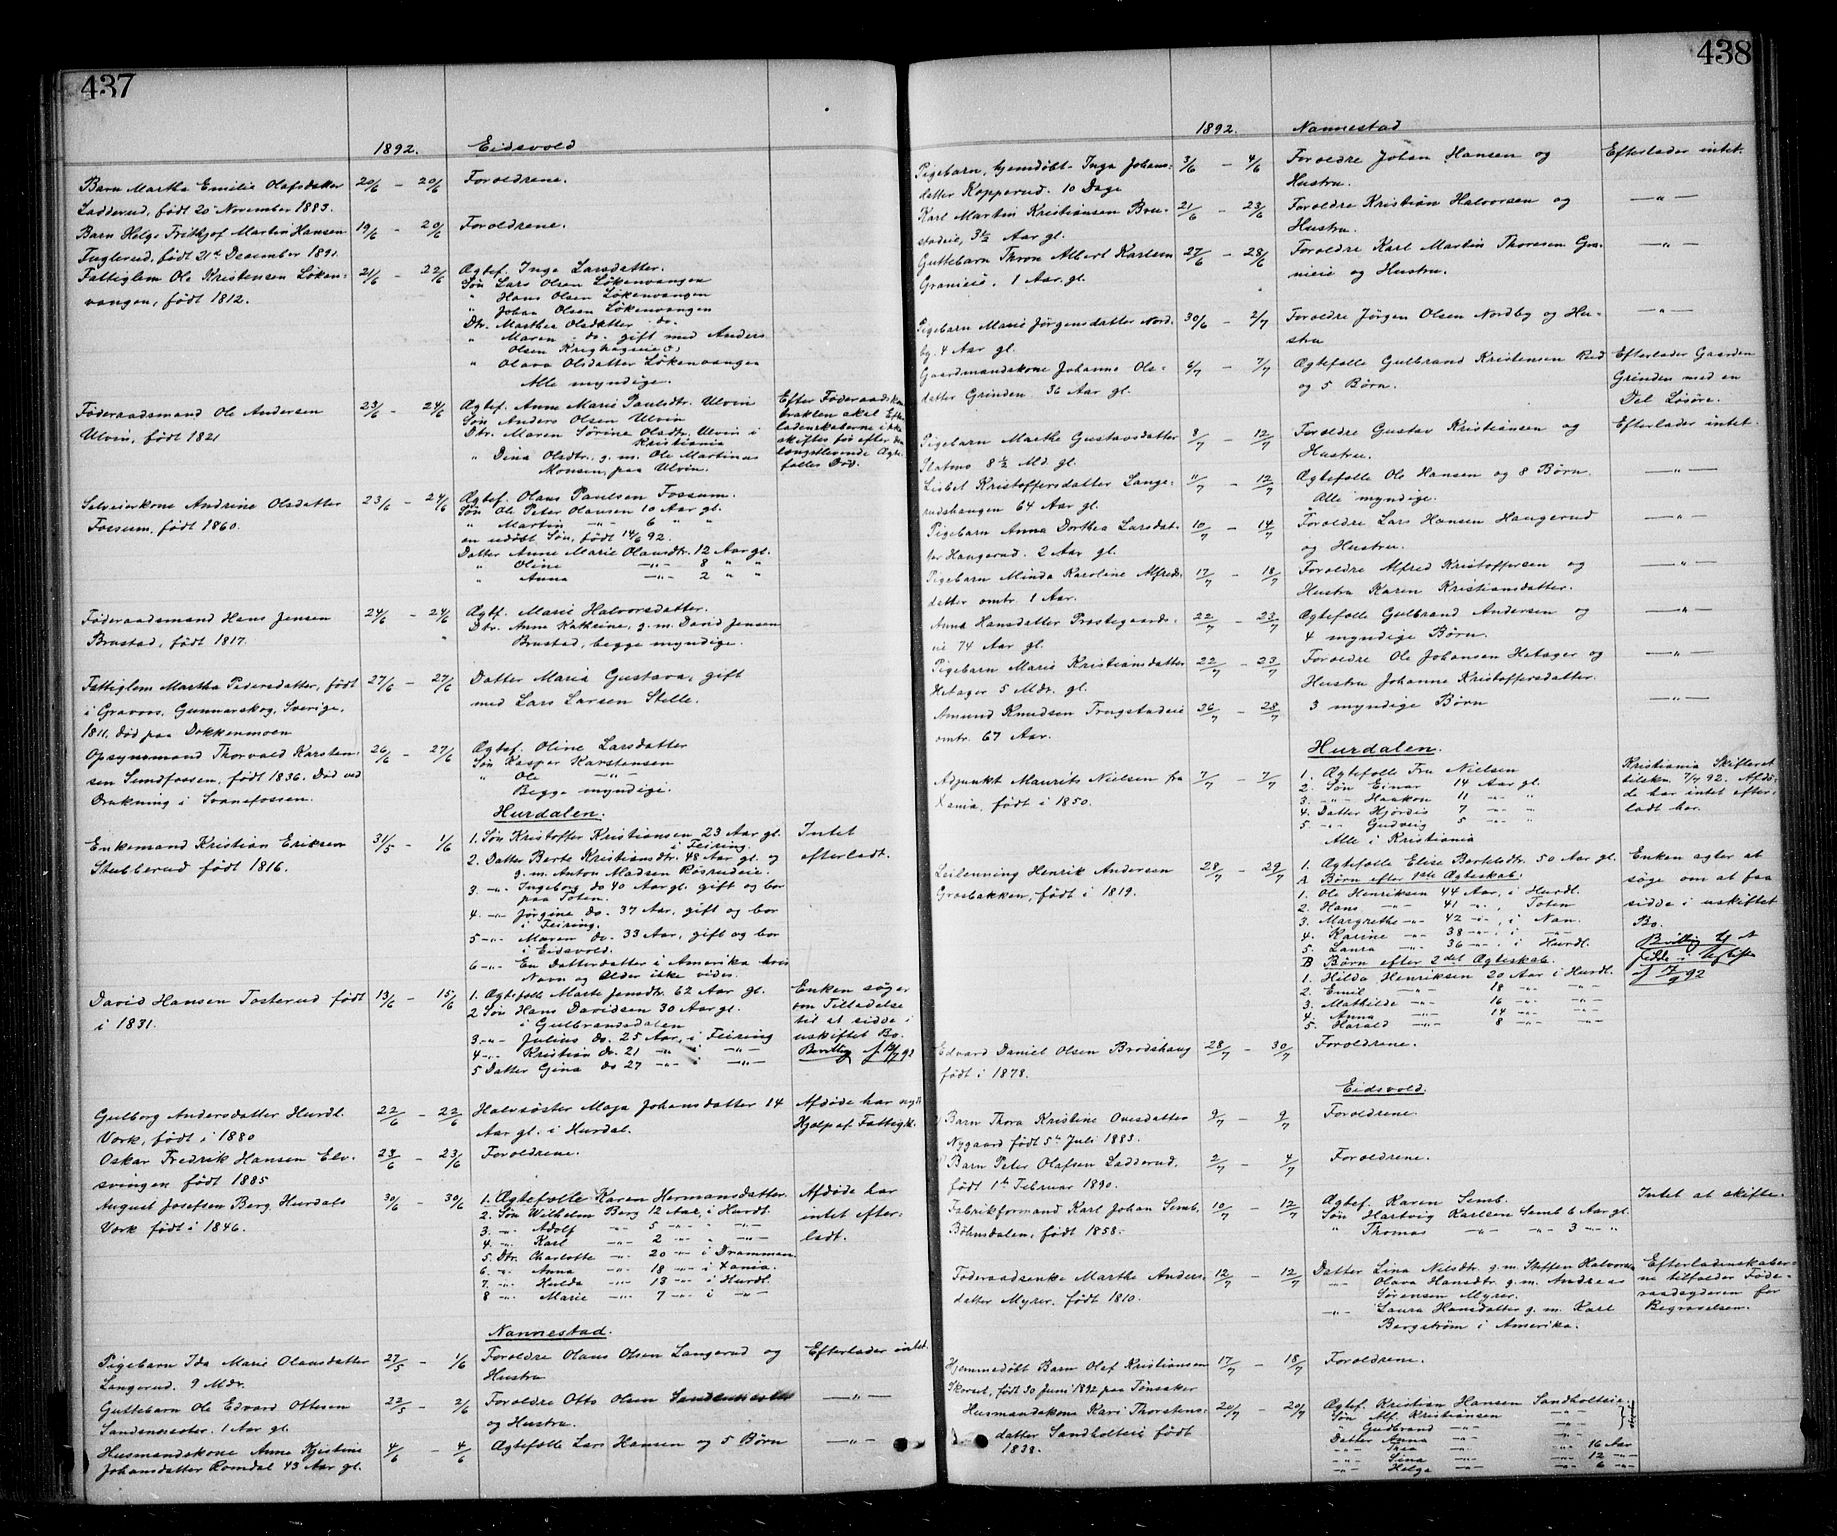 437
1892. Eidsvold
Barn Martha Emilie Olafsdatter 20/6 — 20/6 Forældrene.
Ladderud, født 20 November 1883.
Barn Helge Frithjof Martin Hansen 19/6 — 20/6 Forældrene.
Fuglerud, født 21de Desember 1891.
Fattiglem Ole Kristensen Løken- 21/6 — 22/6 Ægtef. Inge Larsdatter.
vangen, født 1812.
Søn Lars Olsen Løkenvangen
" Hans Olsen Løkenvangen
" Johan Olsen Løkenvangen
Dtr. Marthea Olsdatter do.
" Maren do. gift med Anders
Olsen
" Olava Olsdatter Løkenvangen
Alle myndige.
Føderaadsmand Ole Andersen 23/6 — 24/6 Ægtef. Anne Marie Paulsdtr. Ulvin
Ulvin, født 1821
Søn Anders Olsen Ulvin
Dtr. Maren Sørine Olsdtr. Ulvin i
Kristiania
" Dina Olsdtr., g. m. Ole Martinus
Monsen, paa Ulvin.
Efter Føderaadskon-
trakten skal Efter-
ladenskaberne ikke
skiftes før efter den
længstlevende Ægte-
fælles Død.
Selveierkone Andrine Olsdatter 23/6 — 24/6 Ægtef. Olaus Paulsen Fossum.
Fossum, født 1860.
Søn Ole Peter Olausen 10 Aar gl.
" Martin —"— 6 " "
en udøbt Søn, født 14/6 92.
Datter Anne Marie Olausdtr. 12 Aar gl.
" Oline —"— 8 " "
" Anna —"— 2 " "
Føderaadsmand Hans Jensen 24/6 — 24/6 Ægtef. Marie Halvorsdatter.
Brustad, født 1817.
Dtr. Anne Kathrine, g. m. David Jensen
Brustad, begge myndige.
Fattiglem Martha Pedersdatter, født 27/6 — 27/6 Datter Maria Gustava, gift
i Gravaas, Gunnarskog, Sverige, med Lars Larsen Stelle.
1811, død paa Dokkenmoen
Opsynsmand Thorvald Karsten- 26/6 — 27/6 Ægtef. Oline Larsdatter
sen Sundfossen, født 1836. Død ved Søn Kasper Karstensen
Drukning i Svanefossen. " Ole —"—
Begge myndige.
Hurdalen.
Enkemand Kristian Eriksen 31/5 — 1/6 1. Søn Kristoffer Kristiansen 23 Aar gl. Intet
Stubberud født 1816. i Feiring. efterladt.
2. Datter Berte Kristiansdtr. 48 Aar gl. og
g. m. Anton Madsen Røsrudeie.
3. —"— Ingeborg do 40 Aar gl. gift og bor
paa Toten.
4. —"— Jørgine do. 37 Aar, gift og bor
i Feiring.
5 —"— Maren do. 33 Aar, gift og bor
i Eidsvold.
6 —"— En Datterdatter i Amerika hvis
Navn og Alder ikke vides.
David Hansen Tosterud født 13/6 — 15/6 1. Ægtefælle Marte Jensdtr. 62 Aar gl.
i 1831. 2 Søn Hans Davidsen 30 Aar gl.
i Gulbrandsdalen
3 —"— Julius do. 25 Aar, i Feiring
4 —"— Kristian do. 21 —"— i —"—
5 Datter Gina do 27 —"— i —"—
Enken søger
om Tilladelse
til at sidde i
uskiftet Bo.
Gulborg Andersdatter Hurdl. 22/6 — 22/6 Halvsøster Maja Johansdatter 14 Afdøde har nydt
Værk, født i 1880 Aar gl. i Hurdal. Hjælp af Fattigk.
Oskar Fredrik Hansen Elv- 23/6 — 23/6 Forældrene.
svingen født 1885
August Josefsen Berg Hurdals 30/6 — 30/6 1. Ægtefælle Karen Hermansdatter. Afdøde har
Værk født i 1846. 2. Søn Wilhelm Berg 12 Aar, i Hurdl. intet efter-
3 —"— Adolf —"— 5 —"— —"— ladt.
4 —"— Karl —"— 2 —"— —"—
5. Dtr. Charlotte —"— 20 —"— i Drammen.
6. —"— Anna —"— 18 —"— i Xania.
7. —"— Hulda —"— 13 —"— i Hurdl.
8 —"— Marie —"— 7 —"— i —"—
Nannestad.
Pigebarn Ida Marie Olausdatter 27/5 — 1/6 Forældre Olaus Olsen Langerud og Efterlader intet.
Langerud. 9 Mdr. Hustru
Guttebarn Ole Edvard Ottesen 22/5 — 2/6 Forældre Otto Olsen —"—
Sandensæter. 1 Aar gl. og Hustru.
Husmandskone Anne Kjestine 4/6 — 4/6 Ægtefælle Lars Hansen og 5 Børn —"—
Johansdatter Romdal 43 Aar gl.
438
1892. Nannestad
Pigebarn, hjemdøbt Inga Johans- 3/6 — 4/6 Forældre Johan Hansen og Efterlader intet.
datter Kopperud. 10 Dage Hustru.
Karl Martin Kristiansen Bru- 21/6 — 23/6 Forældre Kristian Halvorsen og —"—
stadeie, 3½ Aar gl. Hustru.
Guttebarn Thron Albert Karlsen 27/6 — 28/6 Forældre Karl Martin Thoresen Gra- —"—
Granieie, 1 Aar gl. nieie og Hustru.
Pigebarn Marie Jørgensdatter Nord- 30/6 — 2/7 Forældre Jørgen Olsen Nordby og Hu- —"—
by. 4 Aar gl. stru
Gaardmandskone Johanne Ols- 6/7 — 7/7 Ægtefælle Gulbrand Kristensen Rud Efterlader Gaarden
datter Grinden 36 Aar gl. og 5 Børn. Grinden med en
Del Løsøre.
Pigebarn Marthe Gustavsdatter 8/7 — 12/7 Forældre Gustav Kristiansen og Efterlader intet.
Slatmo 8½ Md. gl. Hustru.
Lisbet Kristoffersdatter Lange- 11/7 — 12/7 Ægtefælle Ole Hansen og 8 Børn. —"—
rudshaugen 64 Aar gl. Alle myndige.
Pigebarn Anna Dorthea Larsdat- 10/7 — 14/7 Forældre Lars Hansen Haugerud —"—
ter Haugerud. 2 Aar gl. og Hustru.
Pigebarn Minda Karoline Alfreds- 17/7 — 18/7 Forældre Alfred Kristoffersen og —"—
datter omtr. 1 Aar. Hustru Karen Kristiansdatter.
Anna Hansdatter Præstegaards- 22/7 — 23/7 Ægtefælle Gulbrand Andersen og —"—
eie 74 Aar gl. 4 myndige Børn.
Pigebarn Marie Kristiansdatter 22/7 — 23/7 Forældre Ole Johansen Hetager og —"—
Hetager 5 Mdr. gl. Hustru Johanne Kristoffersdatter.
Amund Knudsen Trugstadeie 26/7 — 28/7 3 myndige Børn —"—
omtr. 67 Aar.
Hurdalen.
Adjunkt Maurits Nielsen fra 7/7 — 7/7 1. Ægtefælle Fru Nielsen
Xania, født i 1850. 2. Søn Einar 14 Aar gl.
3. —"— Haakon 11 —"— "
4. Datter Hjørdis 7 —"— "
5 —"— Gudveig 5 —"— "
Alle i Kristiania
Kristiania Skifteret
tilskr. 7/7 92. Afdø-
de har intet efter-
ladt her.
Leilænning Henrik Andersen 28/7 — 29/7 1. Ægtefælle Elise Bertelsdtr. 50 Aar gl. Enken agter at
Græsbakken, født i 1819. A Børn efter 1ste Ægteskab: søge om at faa
1. Ole Henriksen 44 Aar, i Hurdl. sidde i uskiftet
2. Hans —"— 41 —"—, Toten Bo.
3. Margrethe —"— 42 —"—, i Nan.
4. Karine —"— 38 —"—, i —"—
5. Laura —"— 36 —"—, i Hurdl.
B Børn efter 2det Ægteskab.
1. Hilda Henriksen 20 Aar i Hurdl.
2. Emil —"— 18 —"— —"—
3. Mathilde —"— 16 —"— —"—
4. Anna —"— 14 —"— —"—
5. Harald —"— 8 —"— —"—
Edvard Daniel Olsen Brødshaug 28/7 — 30/7 Forældrene.
født i 1878.
Eidsvold.
Barn Thora Kristine Ovesdatter 9/7 — 9/7 Forældrene.
Nygaard født 5te Juli 1883.
Barn Peter Olafsen Ladderud. 2/7 — 4/7 Forældrene.
født 1te Februar 1890.
Fabrikformand Karl Johan Semb. 10/7 — 12/7 Ægtef. Karen Semb. Intet at skifte.
Bøhnsdalen, født 1858. Søn Hartvig Karlsen Semb 6 Aar gl.
" Thomas —"— —"— 3 —"— "
Føderaadsenke Marthe Anders- 12/7 — 12/7 Datter Lina Nilsdtr. g. m. Steffen Halvorsen
datter Myrer. født 1810. —"— Olava Hansdtr. g. m. Andreas
Sørensen Myrer.
—"— Laura Hansdatter g. m. Karl
Bergstrøm i Amerika.
Efterladenskaber-
ne tilfalder Føde-
raadsyderen for
Begravelsen.
Hjemmedøbt Barn Olaf Kristiansen 17/7 — 18/7 Forældrene.
Skorset, født 30 Juni 1892 paa Tønsaker
Husmandskone Kari Thorstens- 20/7 — 20/7 Ægtef. Kristian Hansen Sandholteie
datter Sandholteie født Søn Alf. Kristiansen —"—
1838. " Gudbrand —"— —"—
Datter Anna —"— —"—
—"— Thea —"— —"— 16 Aar
—"— Sina —"— —"— 12 —"—
—"— Helga —"— —"— 6 —"—